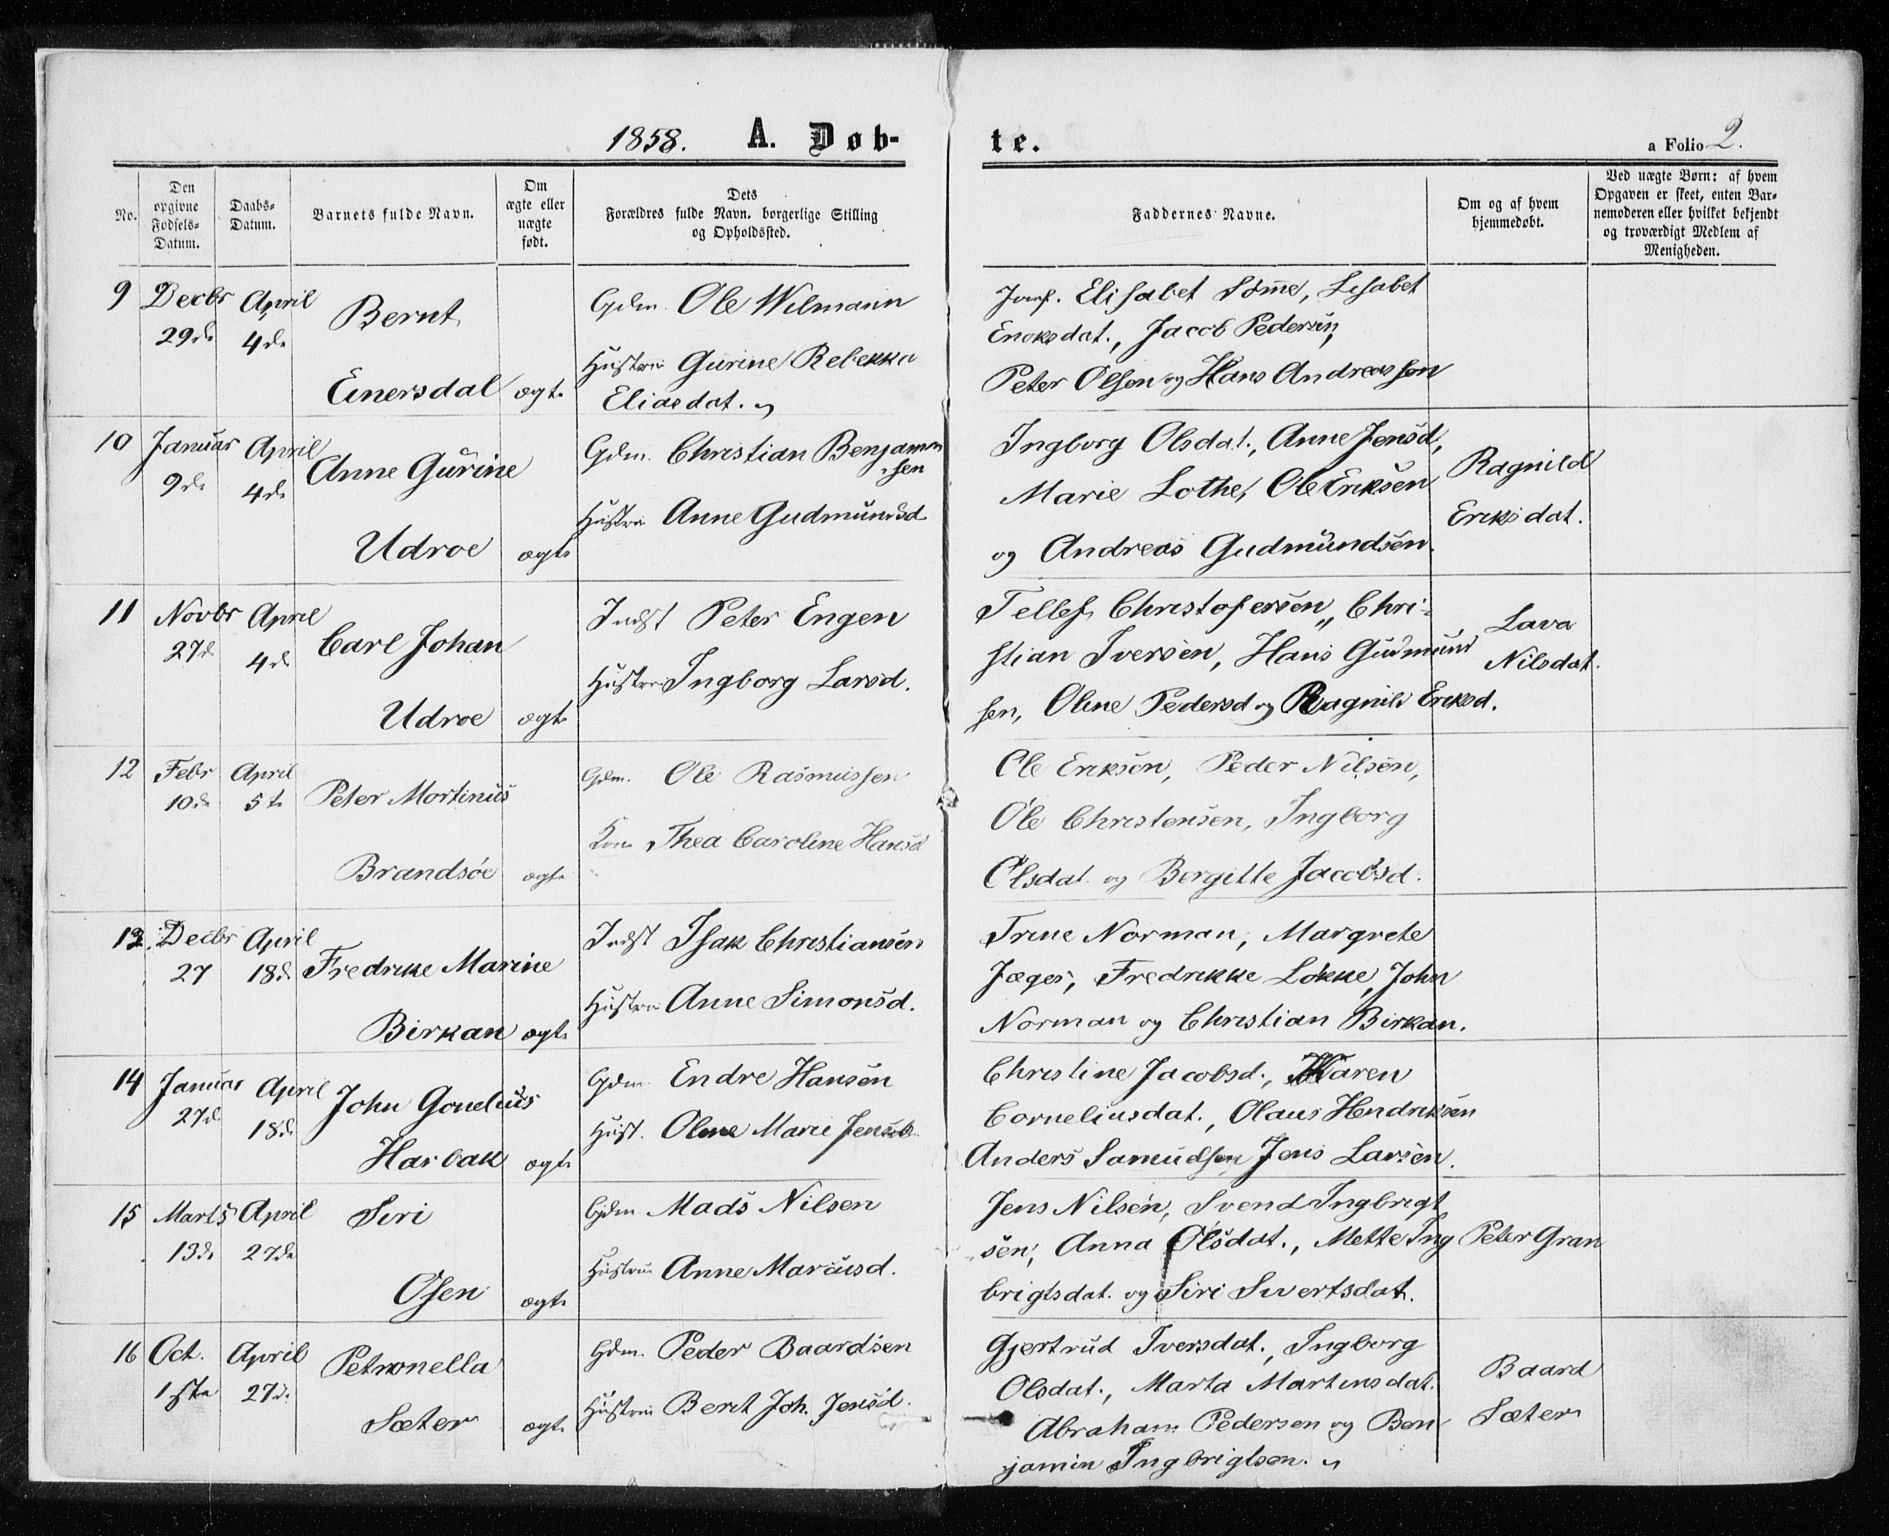 1858. A. Døb-
te.
a Folio 2.
No.
Den opgivne Fødsels-Datum.
Daabs-Datum.
Barnets fulde Navn.
Om ægte eller uægte født.
Dets Forældres fulde Navn, borgerlige Stilling og Opholdssted.
Faddernes Navne.
Om og af hvem hjemmedøbt.
Ved uægte Børn: af hvem Opgaven er skeet, enten Bar-nemoderen eller hvilket bekjendt og troværdigt Medlem af Menigheden.
9 Decbr April Bernt Gdm. Ole Wilmann
29de 4de
Einersdal ægte
Hustru Gurine Rebekka
Eliasdat.
Jomf. Elisabet Sømme, Lisabet
Enoksdat., Jacob Pedersen,
Peter Olsen og Hans Andreassen
10 Januar April Anne Gurine
9de 4de
Udroe ægte
Gdm. Christian Benjamin
sen
Hustru Anne Gudmundsd
Ingborg Olsdat., Anne Jensd,
Marie Lothe, Ole Eriksen
og Andreas Gudmundsen.
Ragnild
Eriksdat.
11 Novbr April Carl Johan
27de 4de
Udroe ægte
Indst Peter Engen
Hustru Ingborg Larsd.
Tellef Christofersen, Chri-
stian Iversen, Hans Gudmund
sen, Oline Pedersd og Ragnild Eriksd.
Lava
Nilsdat.
12 Febr April Peter Mortinus
10de 5te
Brandsøe ægte
Gdm. Ole Rasmussen
Kone Thea Caroline Hansd
Ole Eriksen, Peder Nilsen,
Ole Christensen, Ingborg
Olsdat. og Bergitte Jacobsd.
13. Decbr April Fredrike Marine
27 18de
Birkan ægte
Indst Isak Christiansen
Hustru Anne Simonsd.
Trine Norman, Margrete
Jæger, Fredrikke Løkke, John
Norman og Christian Birkan.
14 Januar April John Gonelius
27de 18de
Harbak ægte
Gdm. Endre Hansen
Hust. Oline Marie Jensd.
Christine Jacobsd., Karen
Corneliusdat., Olaus Hendriksen
Anders Samuelsen Jens Larsen.
15 Marts April Siri
13de 27de
Osen ægte
Gdm Mads Nilsen
Hustru Anne Marcusd.
Jens Nilsen, Svend Ingbrigt
sen, Anna Olsdat., Mette Ing
brigtsdat. og Siri Sivertsdat.
Peter Gran
16 Oct. April Petronella
1ste 27de
Sæter ægte
Gdm. Peder Baardsen
Hustru Berit Joh. Jensd.
Gjertrud Iversdat., Ingborg
Olsdat., Marta Martinsdat.
Abraham Pedersen og Ben
jamin Ingbrigtsen.
Baard
Sæter